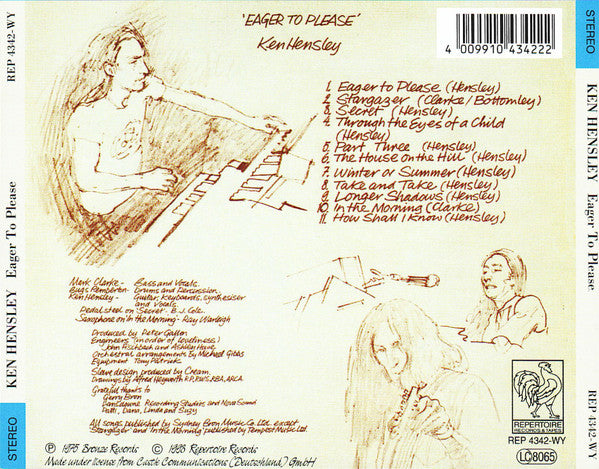 STEREO
REP 4342-WY
KEN HENSLEY Eager To Please
STEREO
'EAGER TO PLEASE'
Ken Hensley
4 009910 434222
1. Eager to Please (Hensley)
2. Stargazer (Clarke/Bottomley)
3. Secret (Hensley)
4. Through the Eyes of a Child
(Hensley)
5. Part Three (Hensley)
6. The House on the Hill (Hensley)
7. Winter or Summer (Hensley)
8. Take and Take (Hensley)
9. Longer Shadows (Hensley)
10. In the Morning (Clarke)
11. How Shall I Know (Hensley)
Mark Clarke - Bass and Vocals.
Bugs Pemberton - Drums and Percussion.
Ken Hensley - Guitar, Keyboards, synthesiser
and Vocals.
Pedal steel on 'Secret' - B.J. Cole.
Saxophone on 'In the Morning' - Ray Warleigh
Produced by Peter Gallen
Engineers (in order of loudness)
John Fischbach and Ashley Howe
Orchestral arrangements by Michael Gibbs
Equipment Tony Patricks
Sleeve design produced by Cream.
Drawings by Alfred Heyworth R.P, RWS, RBA, ARCA.
Grateful thanks to
Gerry Bron
Recording Studios and Nova Sound
Patti, Dana, Linda and Suzy
All songs published by Sydney Bron Music Co. Ltd. except
'Stargazer' and 'In the Morning' published by Tempest Music Ltd.
℗ 1975 Bronze Records © 1993 Repertoire Records
Made under license from Castle Communications (Deutschland) GmbH
REPERTOIRE
RECORDS & TAPES
REP 4342-WY
LC 8065
STEREO
KEN HENSLEY Eager To Please
REP 4342-WY